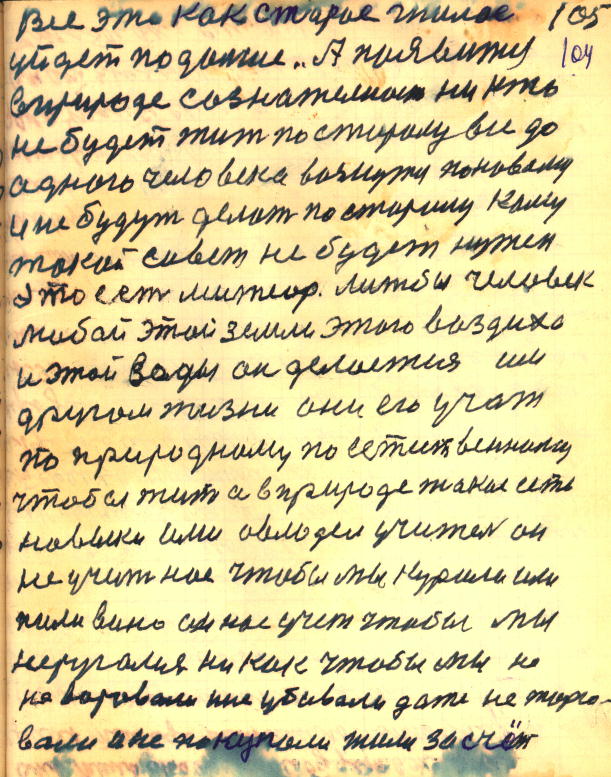 Все это как старое гнилое 105
уйдет подальше.. А появится 104
в природе сознательнои никто
не будет жит постарому все до
одного человека возмутся поновому
и не будут делат постарому кому
такой совет не будет нужен
это сет литбы человек
любой этой земли этого воздиха
и этой воды он делается им
другом жизни они его учат
по природному по сетиственному
чтобы жит а в природе такое сеть
навыки ими овлодел учител он
не учит нас чтобы мы курили или
пили вино он нас учет чтобы мы
неругалис никак чтобы мы не
не воровали ине убивали даже не торго-
вали и не покупали жили за счёт